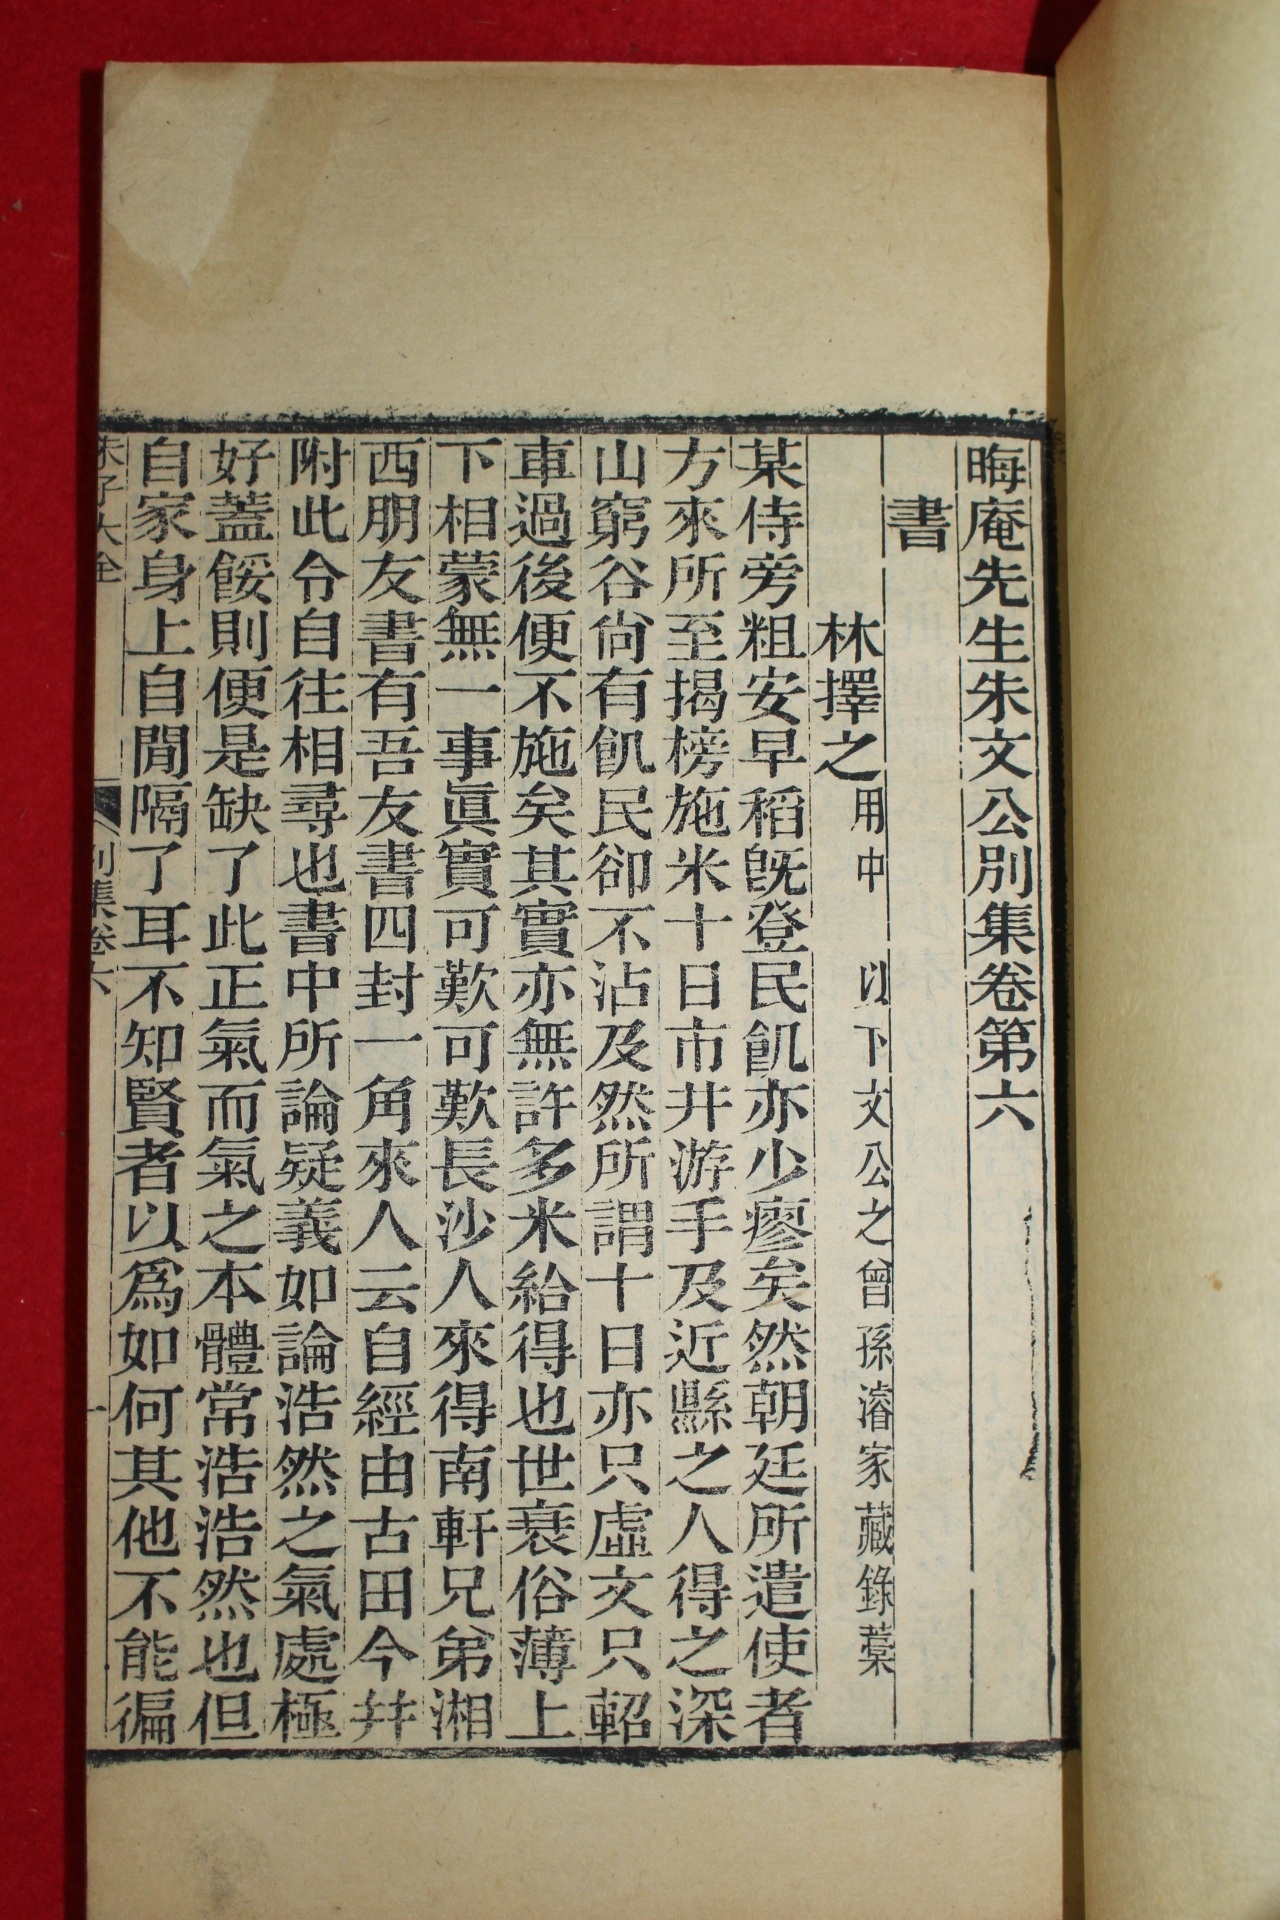 晦庵先生朱文公別集卷第六
書
林擇之用中 以下文公之曾孫濬家藏錄藁
某侍旁粗安早稻旣登民飢亦少瘳矣然朝廷所遣使者
方來所至揭榜施米十日市井游手及近縣之人得之深
山窮谷尙有飢民卻不沾及然所謂十日亦只虛文只軺
車過後便不施矣其實亦無許多米給得也世衰俗薄上
下相蒙無一事眞實可歎可歎長沙人來得南軒兄弟湘
西朋友書有吾友書四封一角來人云自經由古田今幷
附此令自往相尋也書中所論疑義如論浩然之氣處極
好蓋餒則便是缺了此正氣而氣之本體常浩浩然也但
自家身上自閒隔了耳不知賢者以爲如何其他不能徧
朱子大全 別集卷六 一